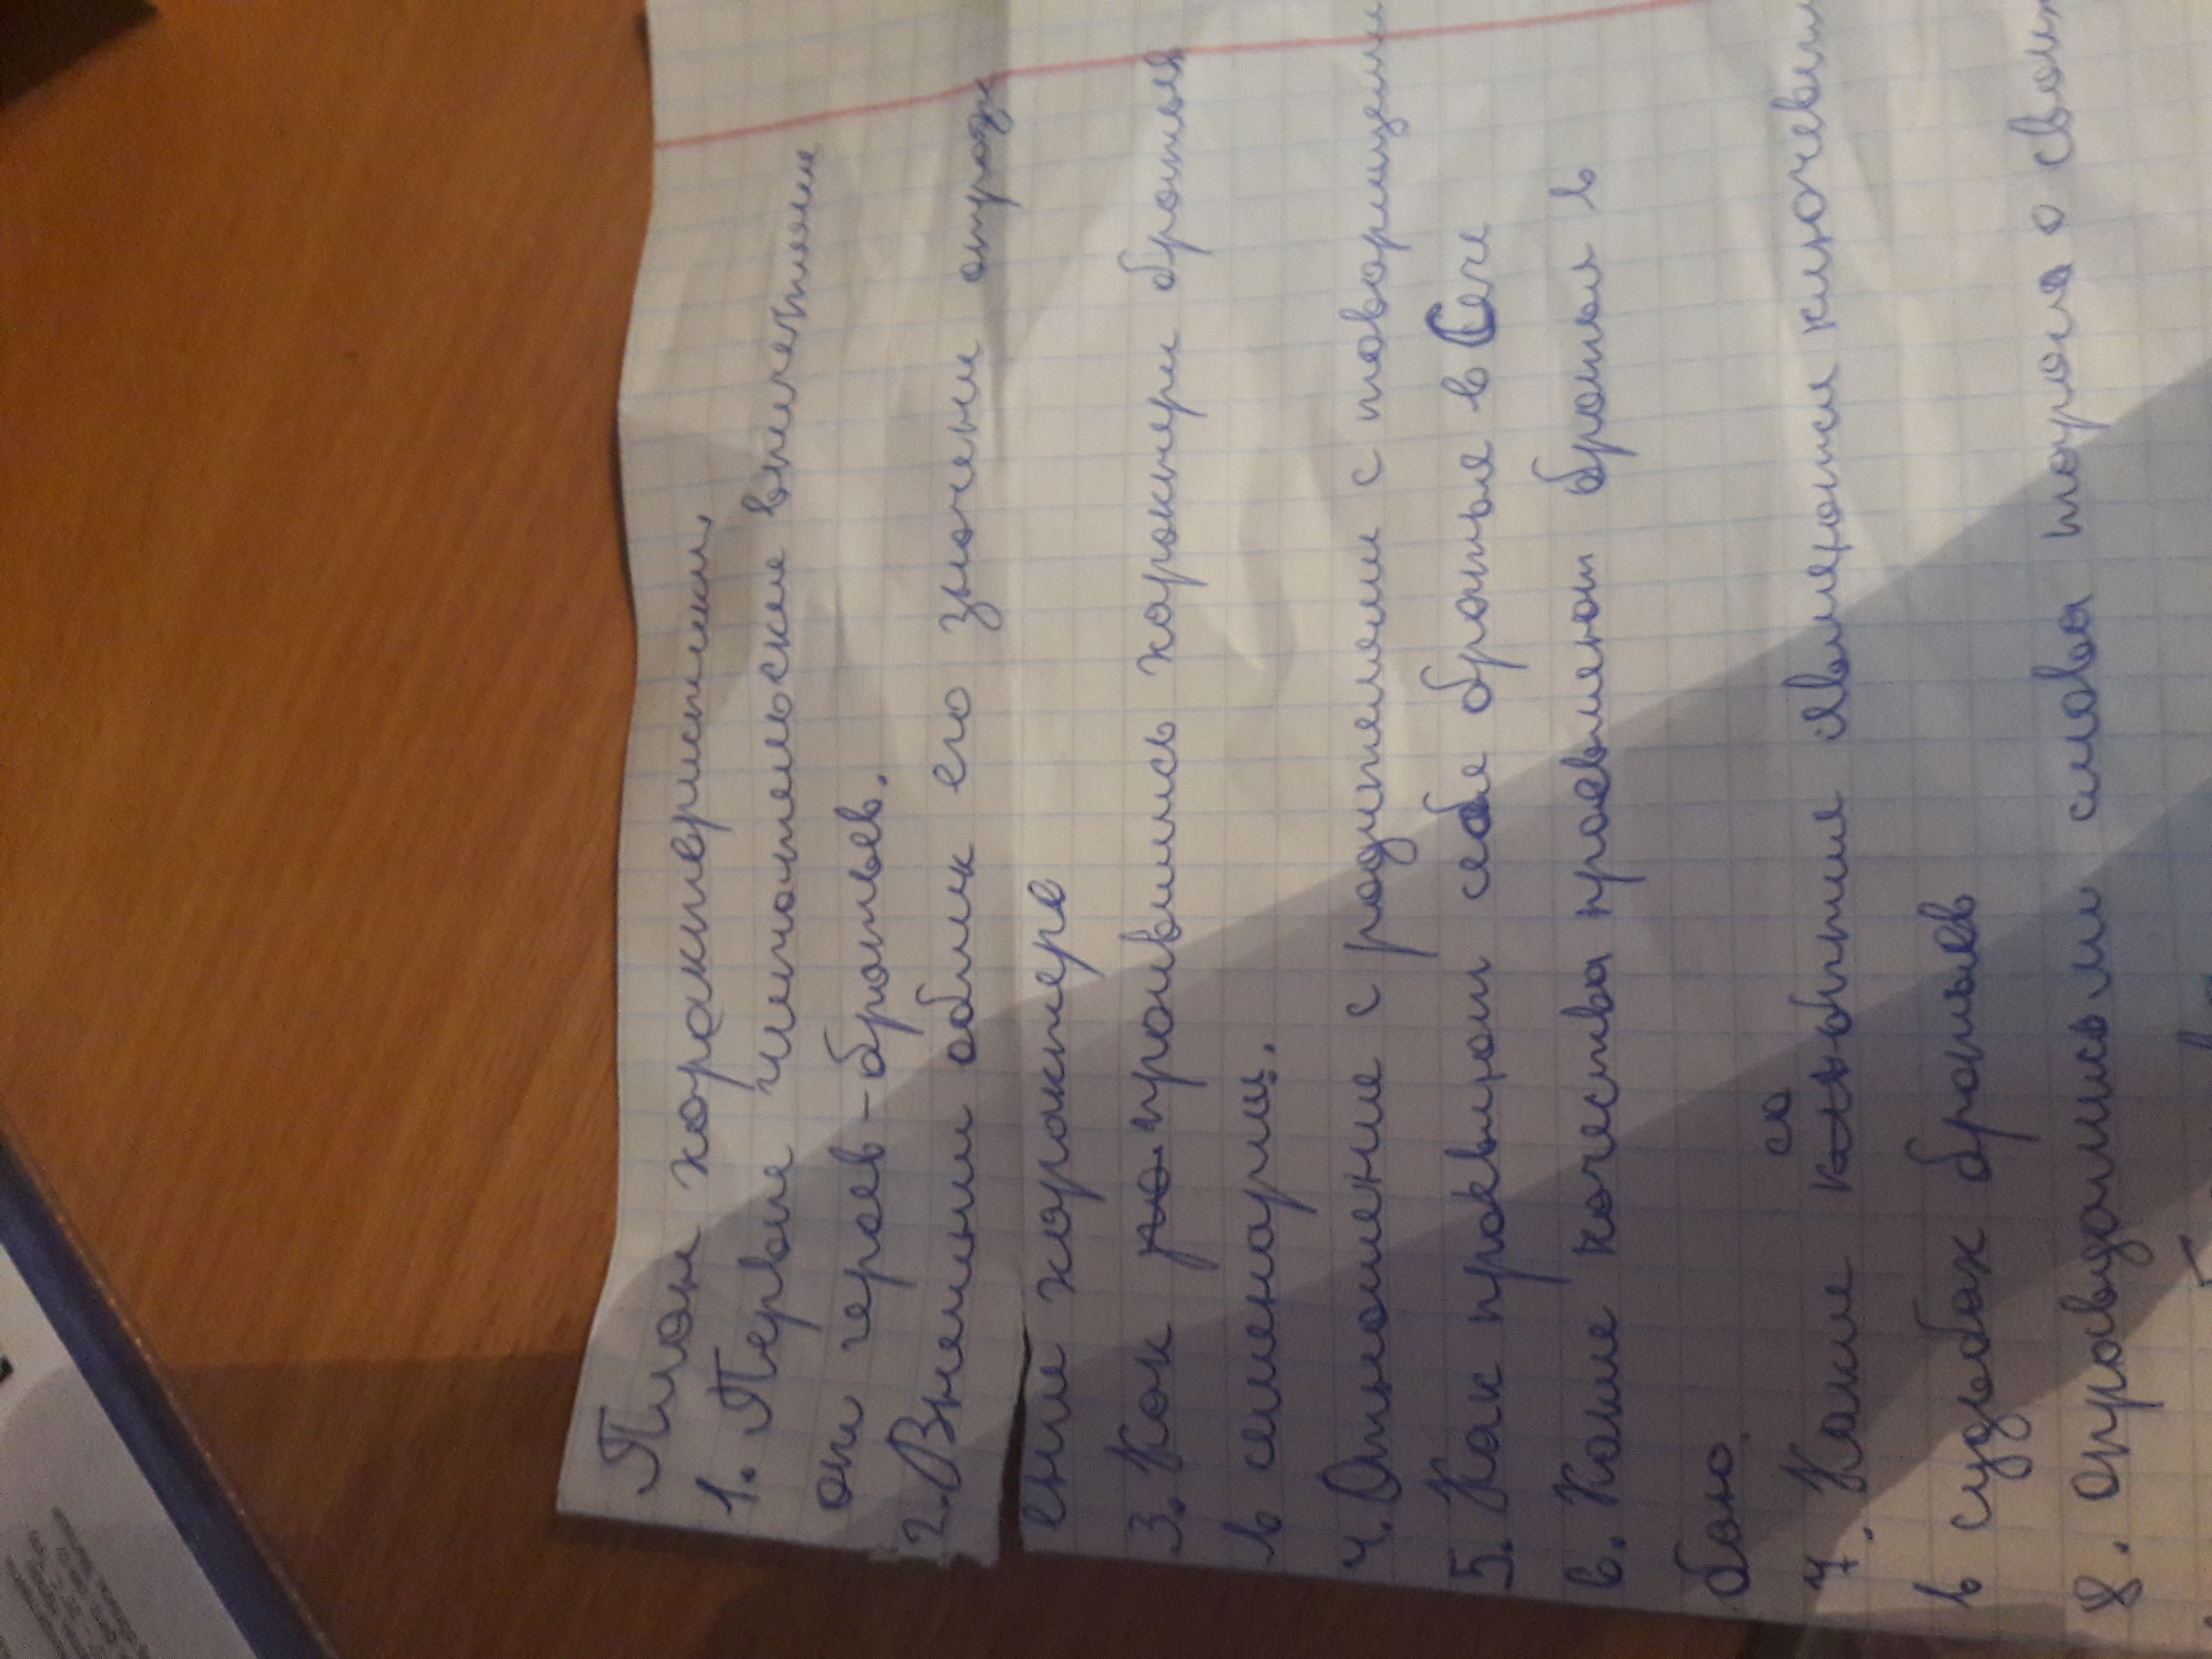 План характеристики
1. Первые читательские впечатления
они героев - братьев.
2. Внешний облик его значении отраж
ение характере
3. Как проявились характеры братьев
в семенарии.
4. Отношение с родителями с товарищами
5. Как проявляют себя братья в Сечи
6. Какие качества проевляют братья в
бою
7. Какие события являющиеся ключевыми
в судьбах братьев
8. Оправдались ли слова Тараса о своих